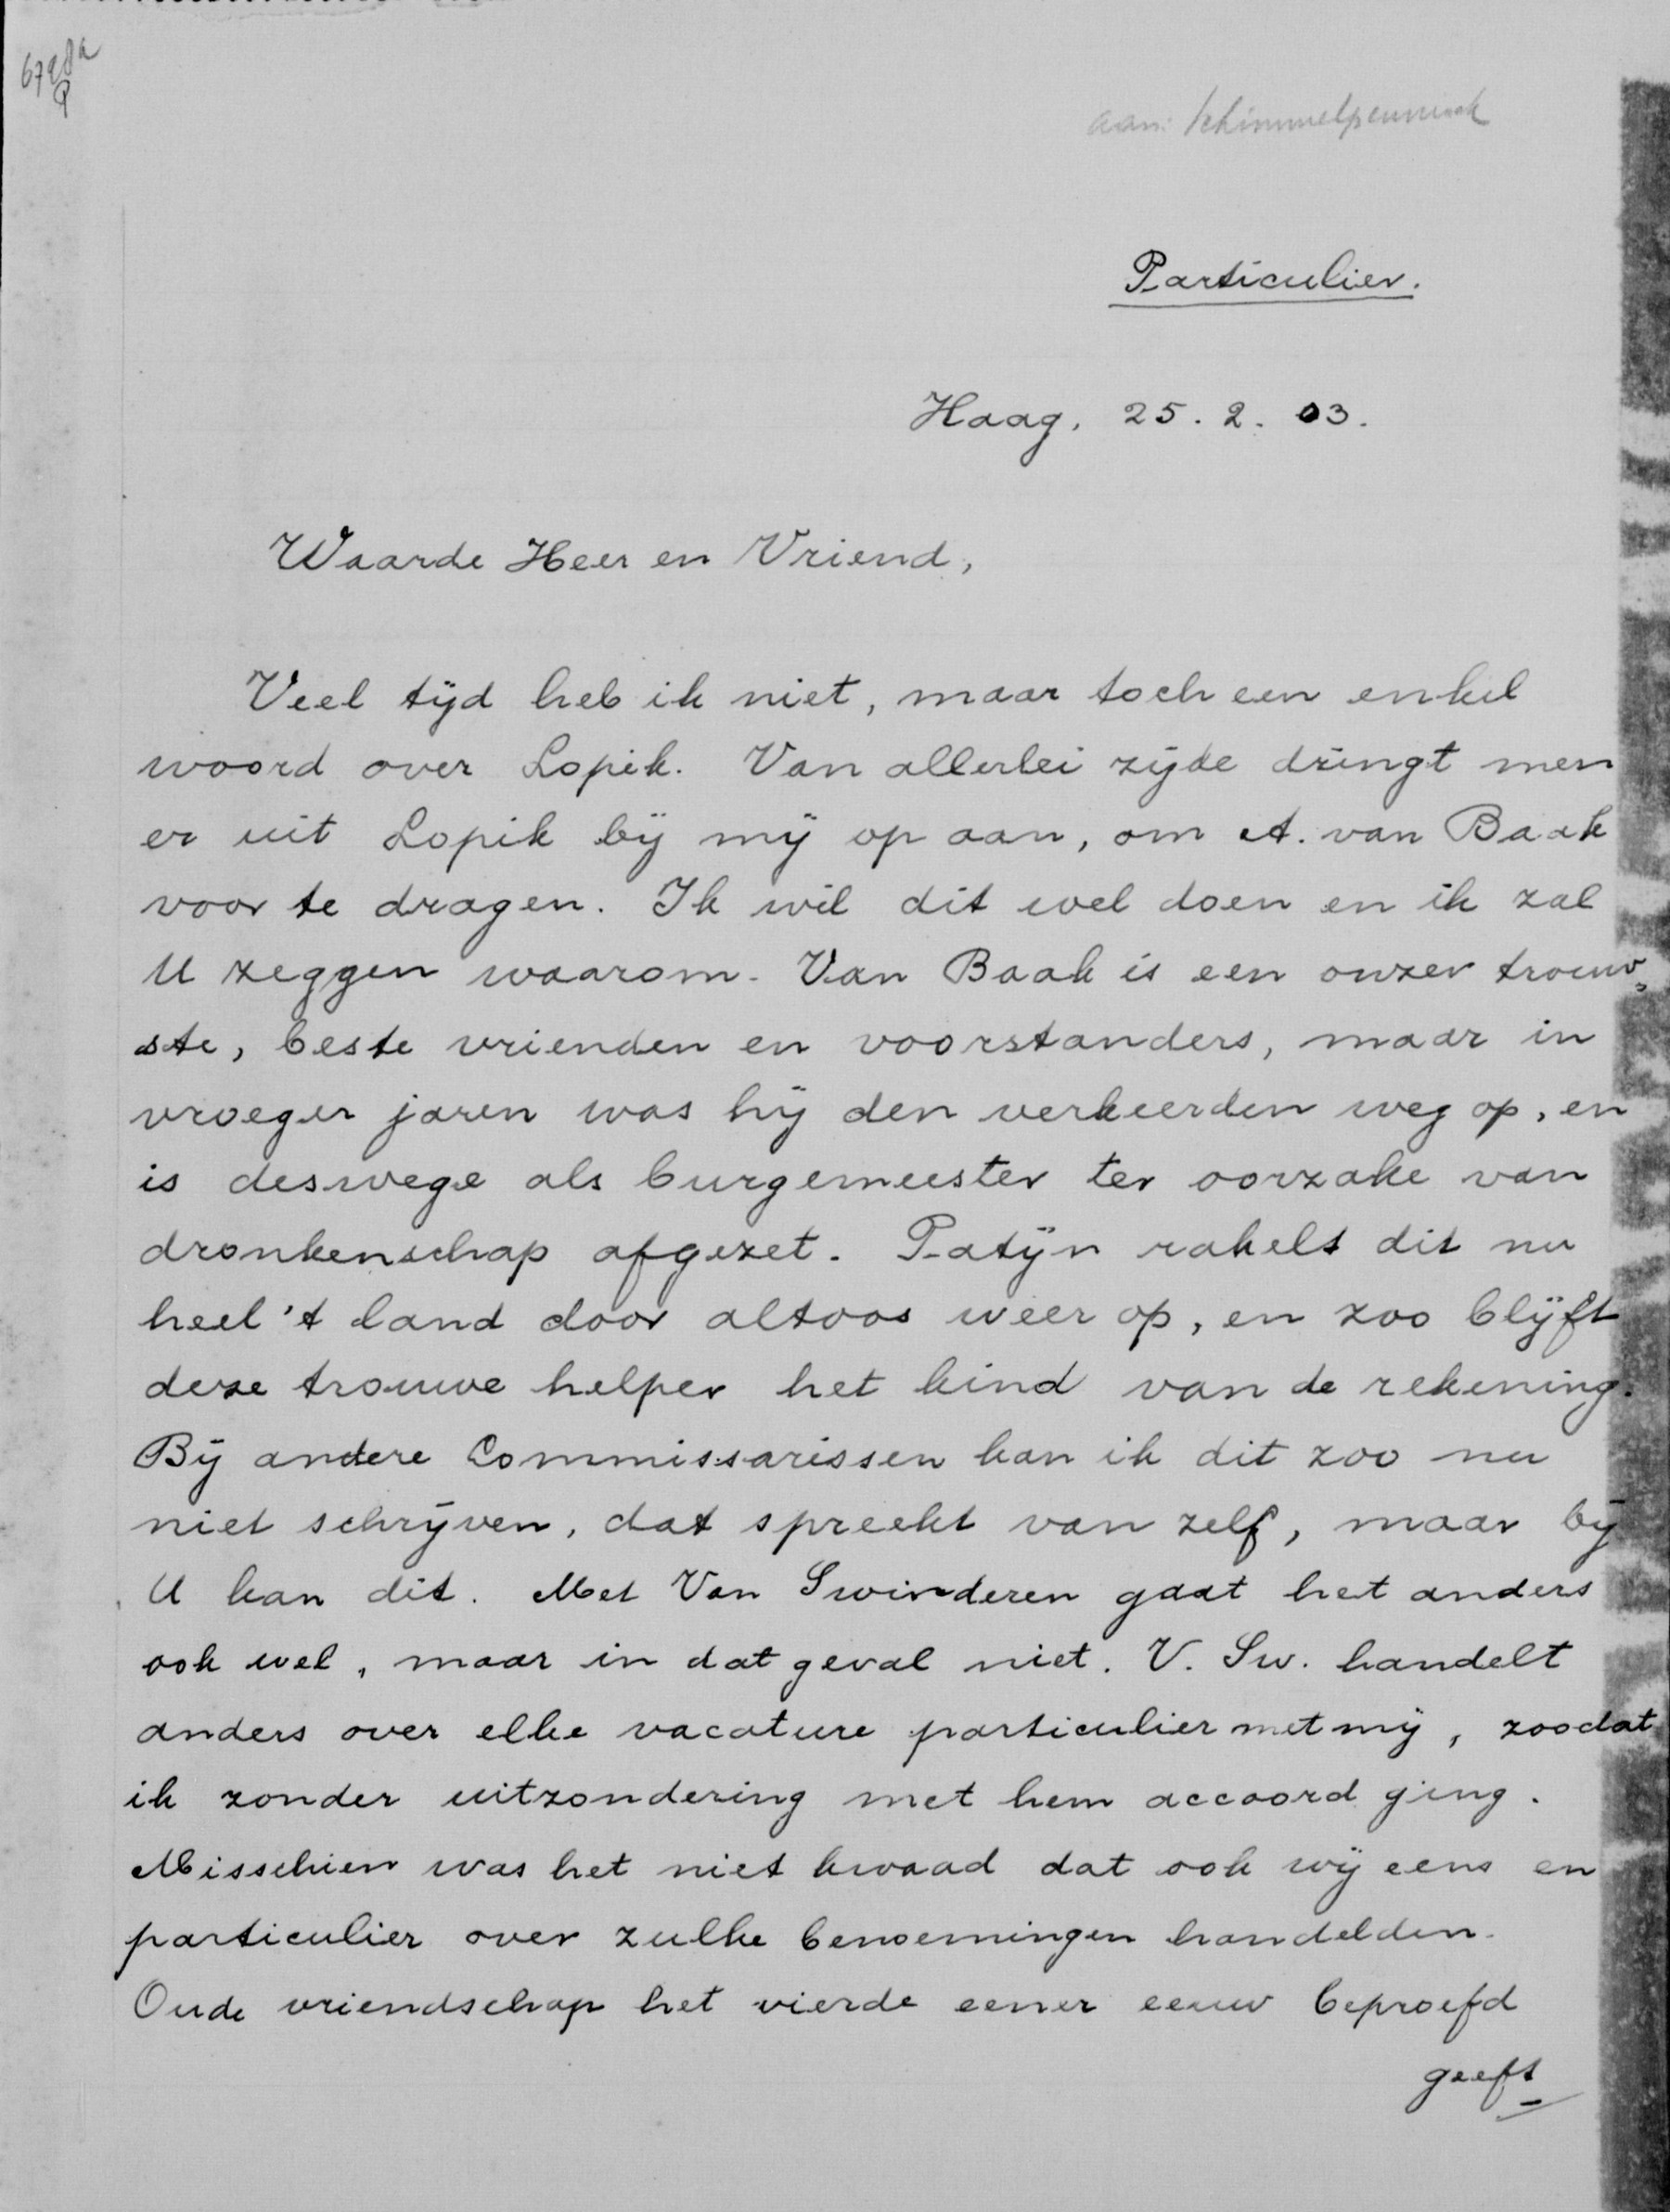 6798a
P
aan: Schimmelpenninck
Particulier.
Haag, 25. 2. 03.
Waarde Heer en Vriend,
Veel tijd heb ik niet, maar toch een enkel
woord over Lopik. Van allerlei zijde dringt men
er uit Lopik bij mij op aan, om A. van Baak
voor te dragen. Ik wil dit wel doen en ik zal
U zeggen waarom. Van Baak is een onzer trouw=
ste, beste vrienden en voorstanders, maar in
vroeger jaren was hij den verkeerden weg op, en
is deswege als burgemeester ter oorzake van
dronkenschap afgezet. Patijn rakelt dit nu
heel 't land door altoos weer op, en zoo blijft
deze trouwe helper het kind van de rekening.
Bij andere Commissarissen kan ik dit zoo nu
niet schrijven, dat spreekt van zelf, maar bij
U kan dit. Met Van Swinderen gaat het anders
ook wel, maar in dat geval niet. V. Sw. handelt
anders over elke vacature particulier met mij, zoodat
ik zonder uitzondering met hem accoord ging.
Misschien was het niet kwaad dat ook wij eens en
particulier over zulke benoemingen handelden.
Oude vriendschap het vierde eener eeuw beproefd
geeft